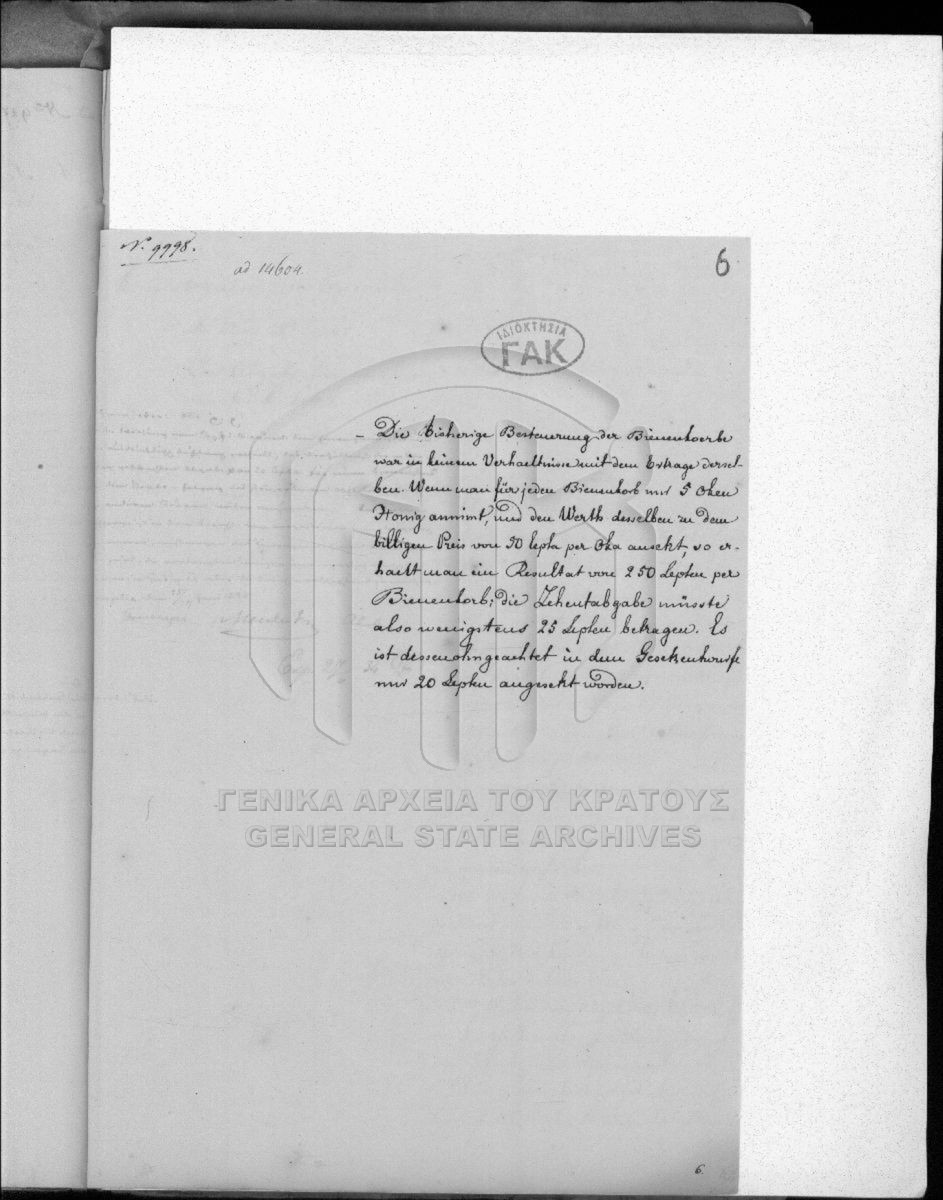 N. 9998.
ad 14604.
6
ΙΔΙΟΚΤΗΣΙΑ
ΓΑΚ
– Die bisherige Besteuerung der Bienenkoerbe
war in keinem Verhaeltnisse mit dem Ertrage dersel-
ben. Wenn man für jeden Bienenkorb nur 5 Oken
Honig annimt, und den Werth desselben zu dem
billigen Preis von 50 lepta per Oka ansetzt, so er-
haelt man ein Resultat von 250 Lepten per
Bienenkorb; die Zehentabgabe müsste
also wenigstens 25 Lepten betragen. Es
ist dessenohngeachtet in dem Gesetzentwurfe
nur 20 Lepten angesetzt worden.
ΓΕΝΙΚΑ ΑΡΧΕΙΑ ΤΟΥ ΚΡΑΤΟΥΣ
GENERAL STATE ARCHIVES
6.